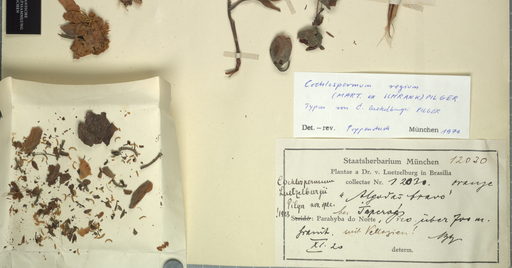 Cochlospermum regium
(MART. ex SCHRANK) PILGER
Typus von C. Luetzelburgii PILGER
Det.-rev. Poppendieck München 1979
Staatsherbarium München 12020
Plantae a Dr. v. Luetzelburg in Brasilia
collectae Nr. 12020. orange
Cochlospermum
Luetzelburgii
Pilger nov. spec.
Algodão bravo
Parahyba do Norte, Pico über 700 m.
XI. 20
determ.